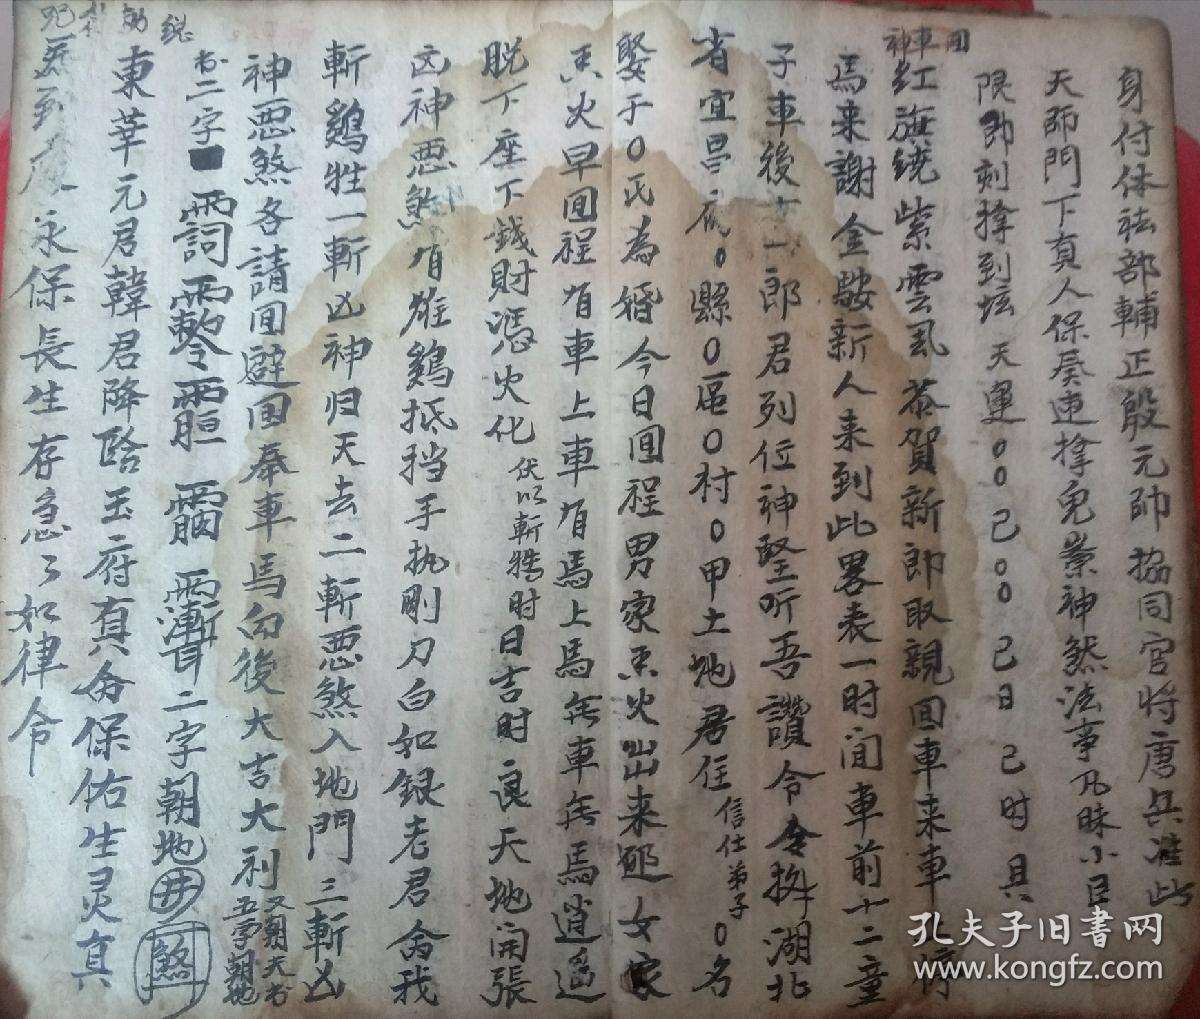 身付体祛部輔正殷元帥協同官将唐兵准此
天师門下真人保癸速擇鬼祟神煞法事凡昧小臣
限即刻擇到坛天運〇〇己〇〇己日己时具
回車神
红旗绕紫雲恭賀新郎取親回車来車
馬来謝金鞍新人来到此畧表一时間車前十二童
子車後十一郎君列位神聖听吾讚令湖北
省宜昌府〇縣〇區〇村〇甲土地居住信仕弟子〇名
娶于〇氏為婚今日回程男家火出来迎女家
火早回程有車上車有馬上馬無車無馬逍遥
脱下座下錢財憑火化伏以斬牲时日吉时良天地開張
凶神恶煞有雄鷄抵挡手执刚刀白如银老君命我
斬鷄牲一斬凶神归天去二斬恶煞入地門三斬凶
神恶煞各請回避回奉車馬向後大吉大利又朝天书五字朝地
书二字二字朝地井煞
東華元君韓君降臨玉府真命保佑生灵真
永保長生存急々如律令
孔夫子旧書网
www.kongfz.com